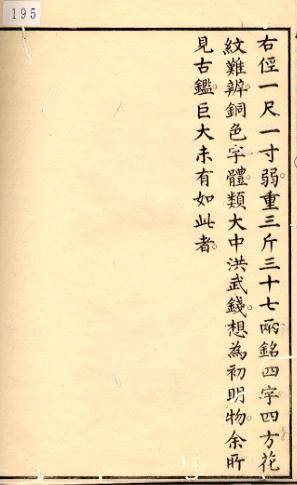 195
右徑一尺一寸弱。重三斤三十七兩銘四字四方花
紋難辨。銅色字體類大中洪武錢。想為初明物。余所
見古鑑。巨大未有如此者。